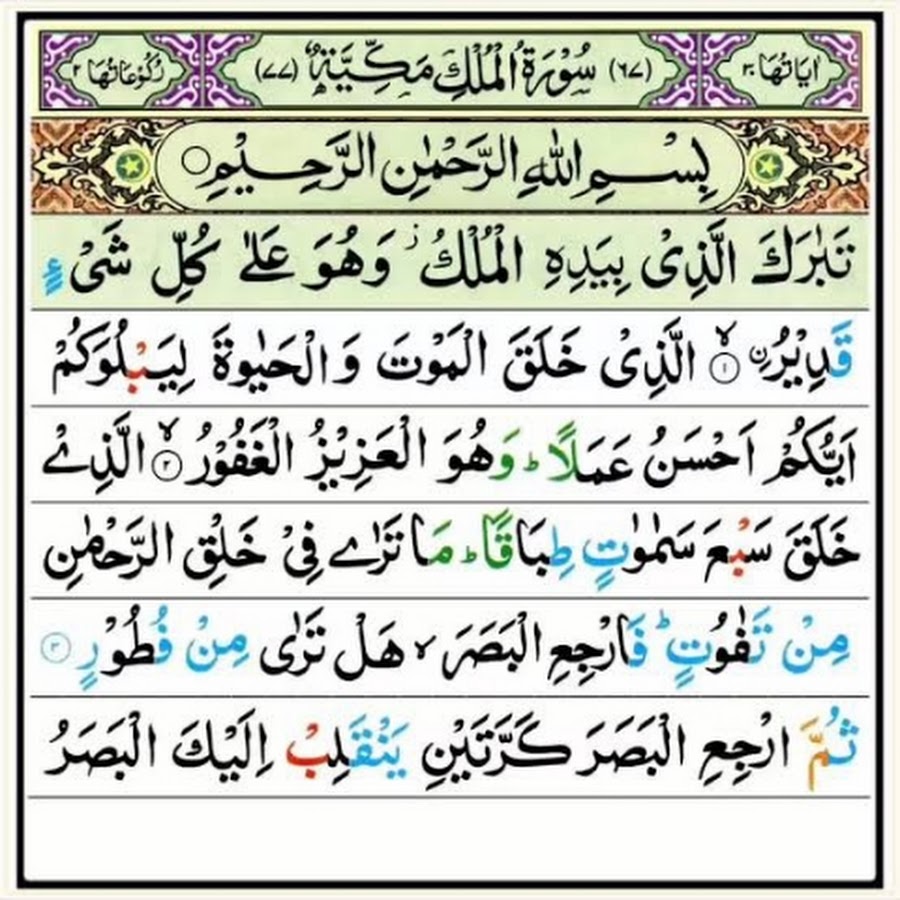 اٰيَاتُهَا ٣٠ (٦٧) سُوْرَةُ الْمُلْكِ مَكِّيَّةٌ (٧٧) رُكُوْعَاتُهَا ٢
بِسْمِ اللّٰهِ الرَّحْمٰنِ الرَّحِيْمِ ○
تَبٰرَكَ الَّذِىْ بِيَدِهِ الْمُلْكُ ز وَهُوَ عَلٰى كُلِّ شَىْءٍ
قَدِيْرُ ۨ ۙ ۝١ الَّذِىْ خَلَقَ الْمَوْتَ وَ الْحَيٰوةَ لِيَبْلُوَكُمْ
اَيُّكُمْ اَحْسَنُ عَمَلًا ؕ وَهُوَ الْعَزِيْزُ الْغَفُوْرُ ۙ ۝٢ الَّذِىْ
خَلَقَ سَبْعَ سَمٰوٰتٍ طِبَاقًا ؕ مَا تَرٰى فِىْ خَلْقِ الرَّحْمٰنِ
مِنْ تَفٰوُتٍ ؕ فَارْجِعِ الْبَصَرَ ۙ هَلْ تَرٰى مِنْ فُطُوْرٍ ۝٣
ثُمَّ ارْجِعِ الْبَصَرَ كَرَّتَيْنِ يَنْقَلِبْ اِلَيْكَ الْبَصَرُ